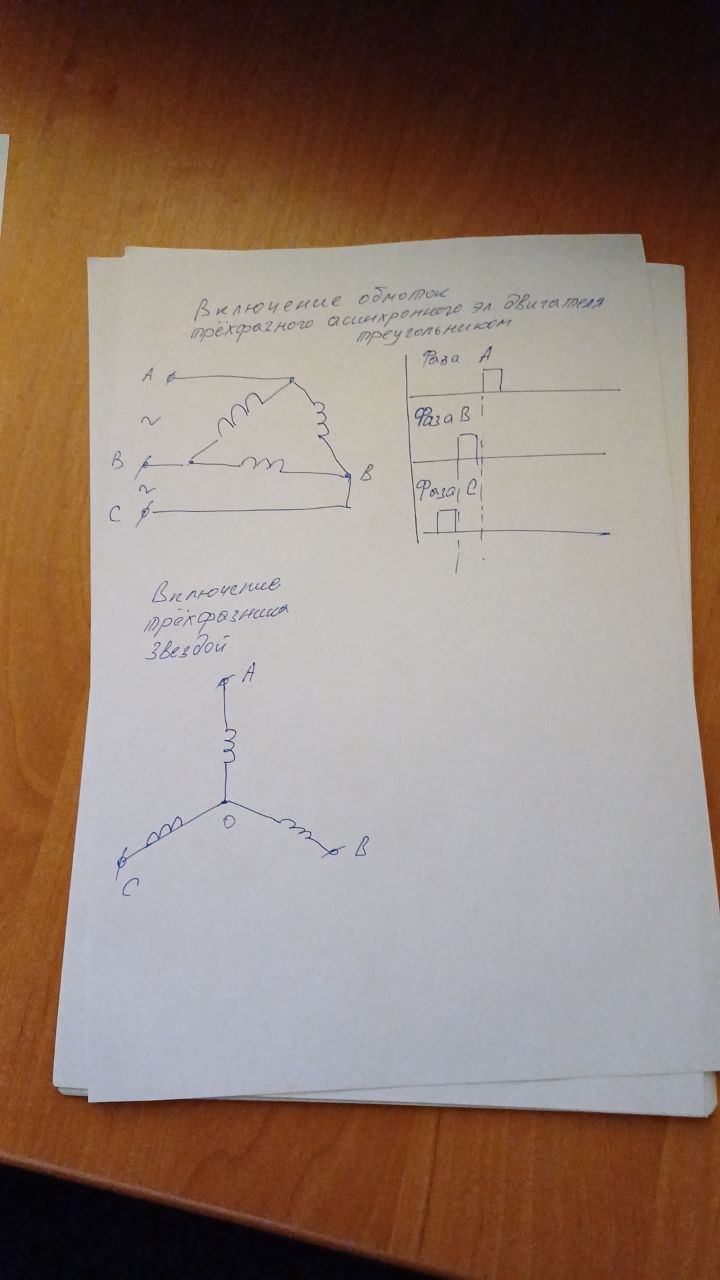 Включение обмоток
трёхфазного асинхронного эл двигателя
треугольником
A
~
B
~
C
B
Фаза A
Фаза B
Фаза C
Включение
трёхфазника
Звездой
A
O
B
C